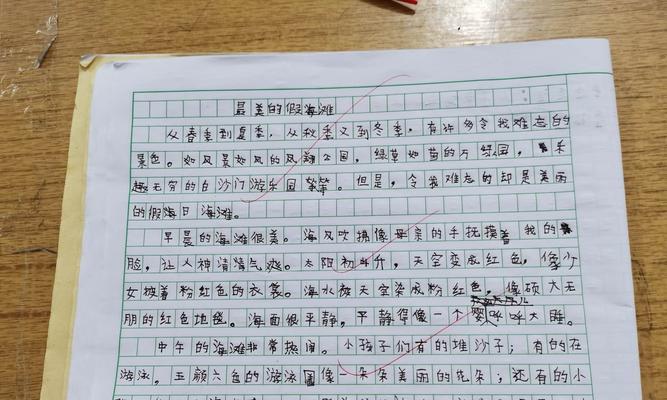 最美的假海滩
从春季到夏季，从秋季又到冬季，有许多令我难忘的
景色。如风景如风的风翔公园，绿草如茵的万绿园，乐
趣无穷的白沙门游乐园等等。但是，令我难忘的却是美丽
的假海日海滩。
早晨的海滩很美。海风吹拂像母亲的手抚摸着我的
脸，让人神清清气爽。太阳初升，天空变成红色，像少
女披着粉红色的衣裳。海水被天空染成粉红色，像硕大无
朋的红色地毯。海面很平静，平静得像一个婴呼呼大睡。
中午的海滩非常热闹。小孩子们有的堆沙子；有的在
游泳。五颜六色的游泳圈像一朵朵美丽的花朵；还有的小